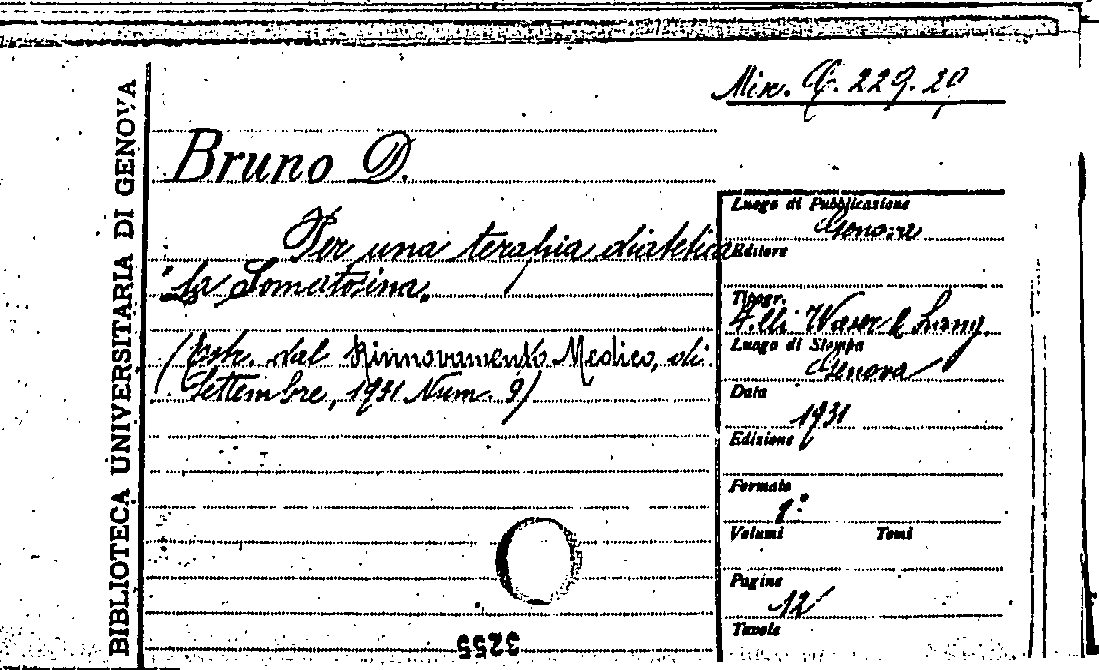 BIBLIOTECA UNIVERSITARIA DI GENOVA
Misc. G. 229. 29
Bruno D.
Per una terapia dietetica
"La Somatosina"
(Estr. dal Rinnovamento Medico, di
Settembre, 1931 Num. 9)
Luogo di Pubblicazione
Genova
Editore
Tipogr.
F.lli Waser &
Luogo di Stampa
Genova
Data
1931
Edizione
Formato
8°
Volumi Tomi
Pagine
12
Tavole
3255